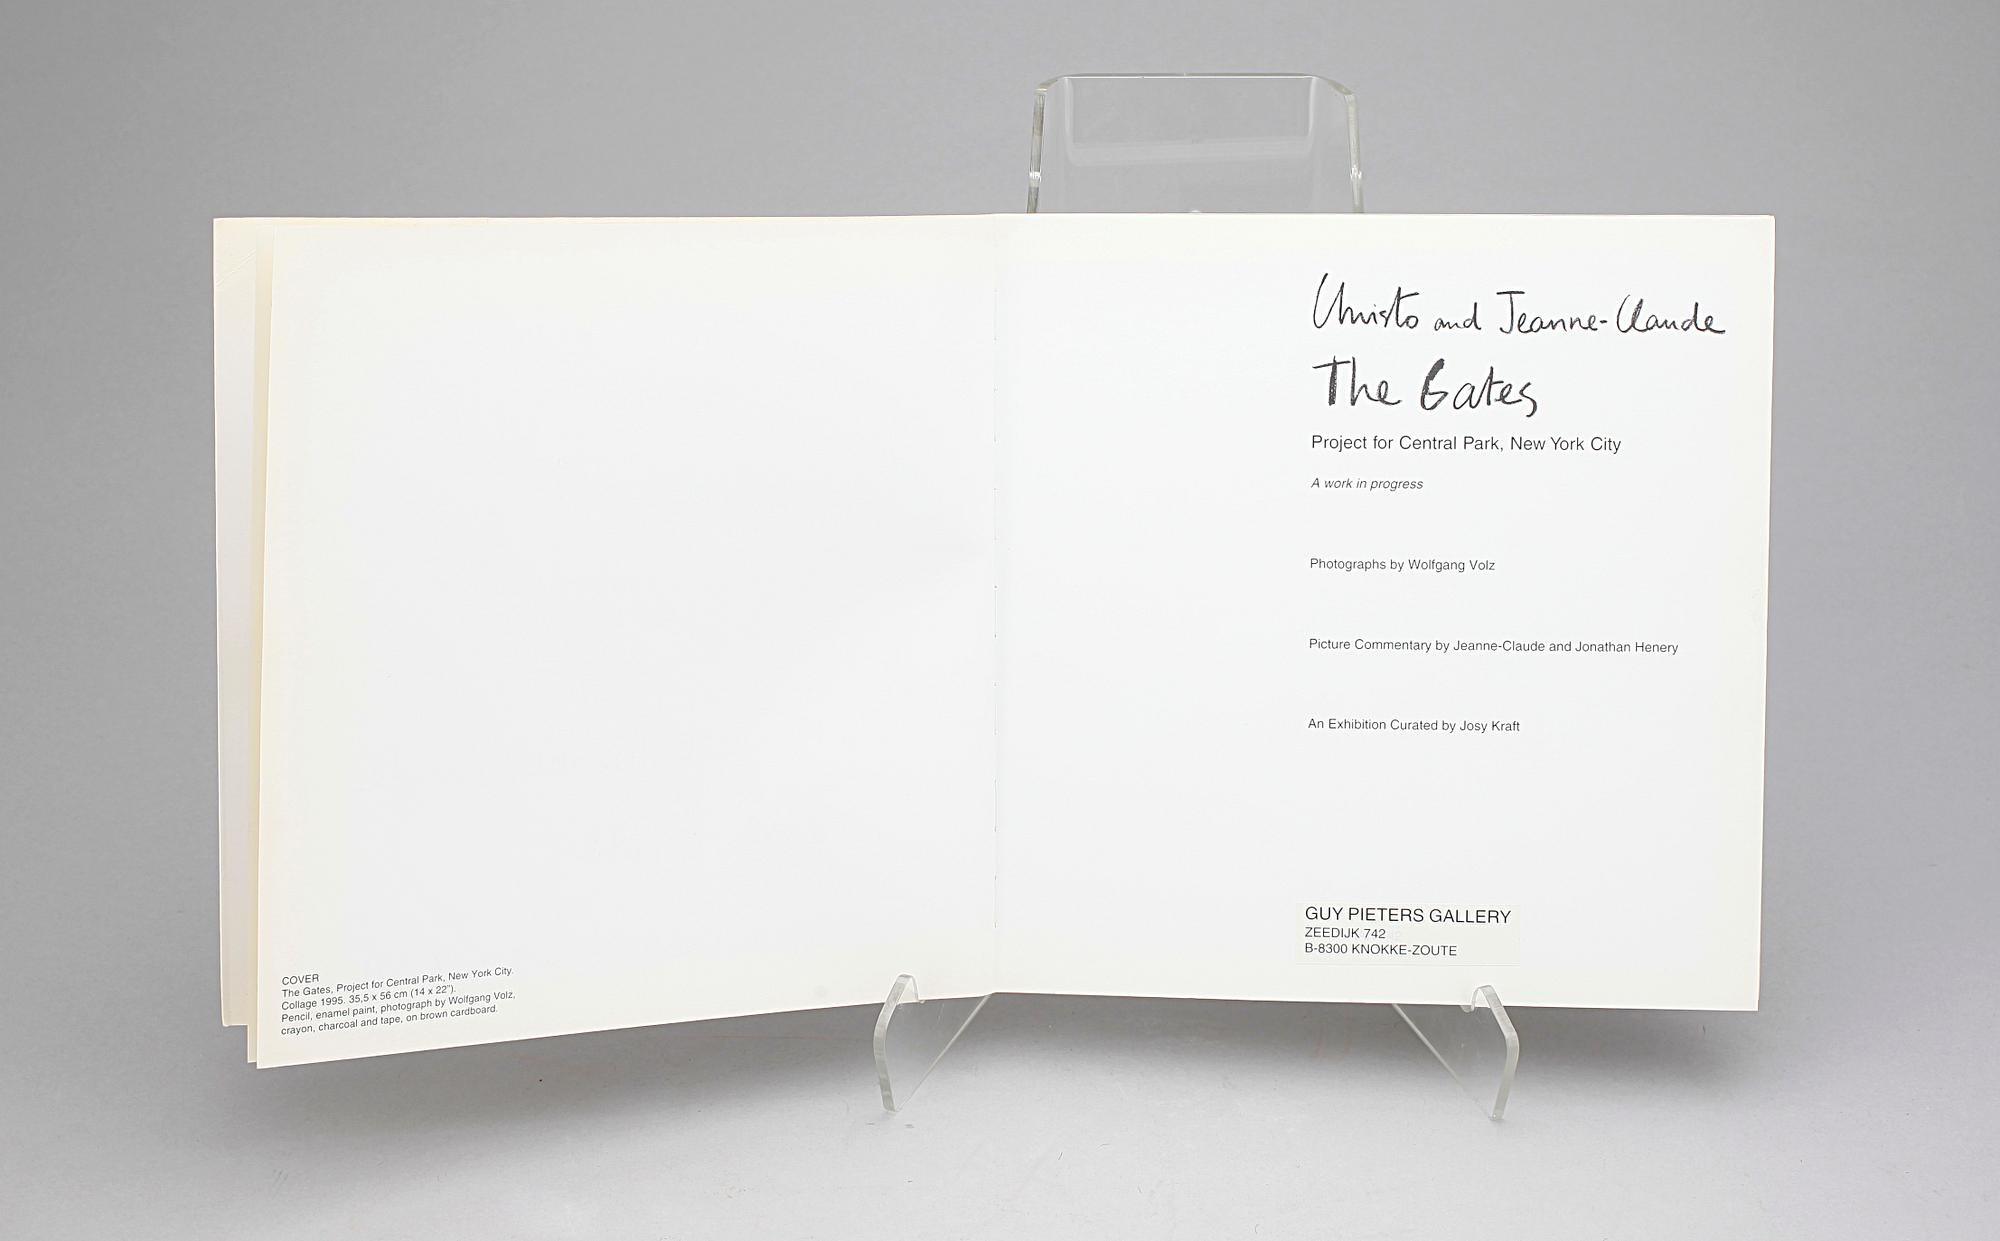 COVER
The Gates, Project for Central Park, New York City.
Collage 1995. 35,5 x 56 cm (14 x 22").
Pencil, enamel paint, photograph by Wolfgang Volz,
crayon, charcoal and tape, on brown cardboard.
Christo and Jeanne-Claude
The Gates
Project for Central Park, New York City
A work in progress
Photographs by Wolfgang Volz
Picture Commentary by Jeanne-Claude and Jonathan Henery
An Exhibition Curated by Josy Kraft
GUY PIETERS GALLERY
ZEEDIJK 742
B-8300 KNOKKE-ZOUTE